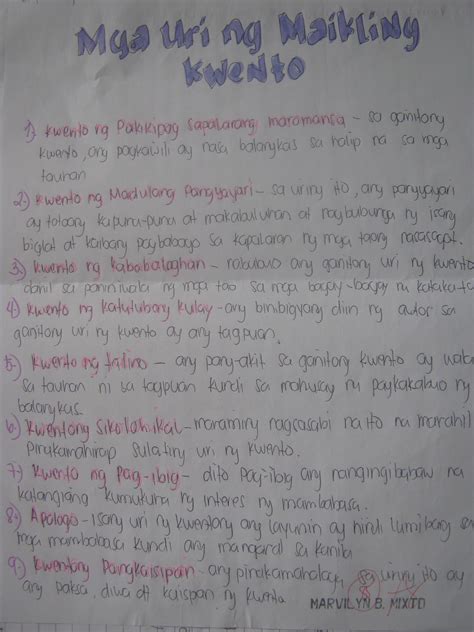 Mga Uri ng Maikling
Kwento
1.) Kwento ng Pakikipag sapalarang maromansa - sa ganitong
kwento, ang pagkawili ay nasa balangkas sa halip na sa mga
tauhan
2.) Kwento ng Madulang Pangyayari - sa uring ito, ang pangyayari
ay totoong kapuna-puna at makabuluhan at nagbubunga ng isang
bigla at kaibang pagbabago sa kapalaran ng mga taong nasasangkot.
3.) Kwento ng Kababalaghan - nabubuo ang ganitong uri ng kwento
dahil sa paniniwala ng mga tao sa mga bagay-bagay na
4.) Kwento ng Katutubong Kulay - ang binibigyang diin ng autor sa
ganitong uri ng kwento ay ang tagpuan.
5.) Kwento ng talino - ang pang-akit sa ganitong kwento ay wala
sa tauhan ni sa tagpuan kundi sa mahusay na pagkakabuo ng
balangkas.
6.) Kwentong Sikolohikal - maraming nagsasabi na ito na marahil
Pinakamahirap sulating uri ng kwento.
7.) Kwento ng Pag-ibig - dito Pag-ibig ang nangingibabaw na
katangiang kumukuha ng interes ng mambabasa.
8.) Apologo - isang uri ng kwentong ang layunin ay hindi lumibang sa
mga mambabasa kundi ang mangaral sa kanila
9.) Kwentong Pangkaisipan - ang pinakamahalaga sa uring ito ay
ang paksa, diwa at kaisipan ng kwento
MARVILYN B. MIXTO